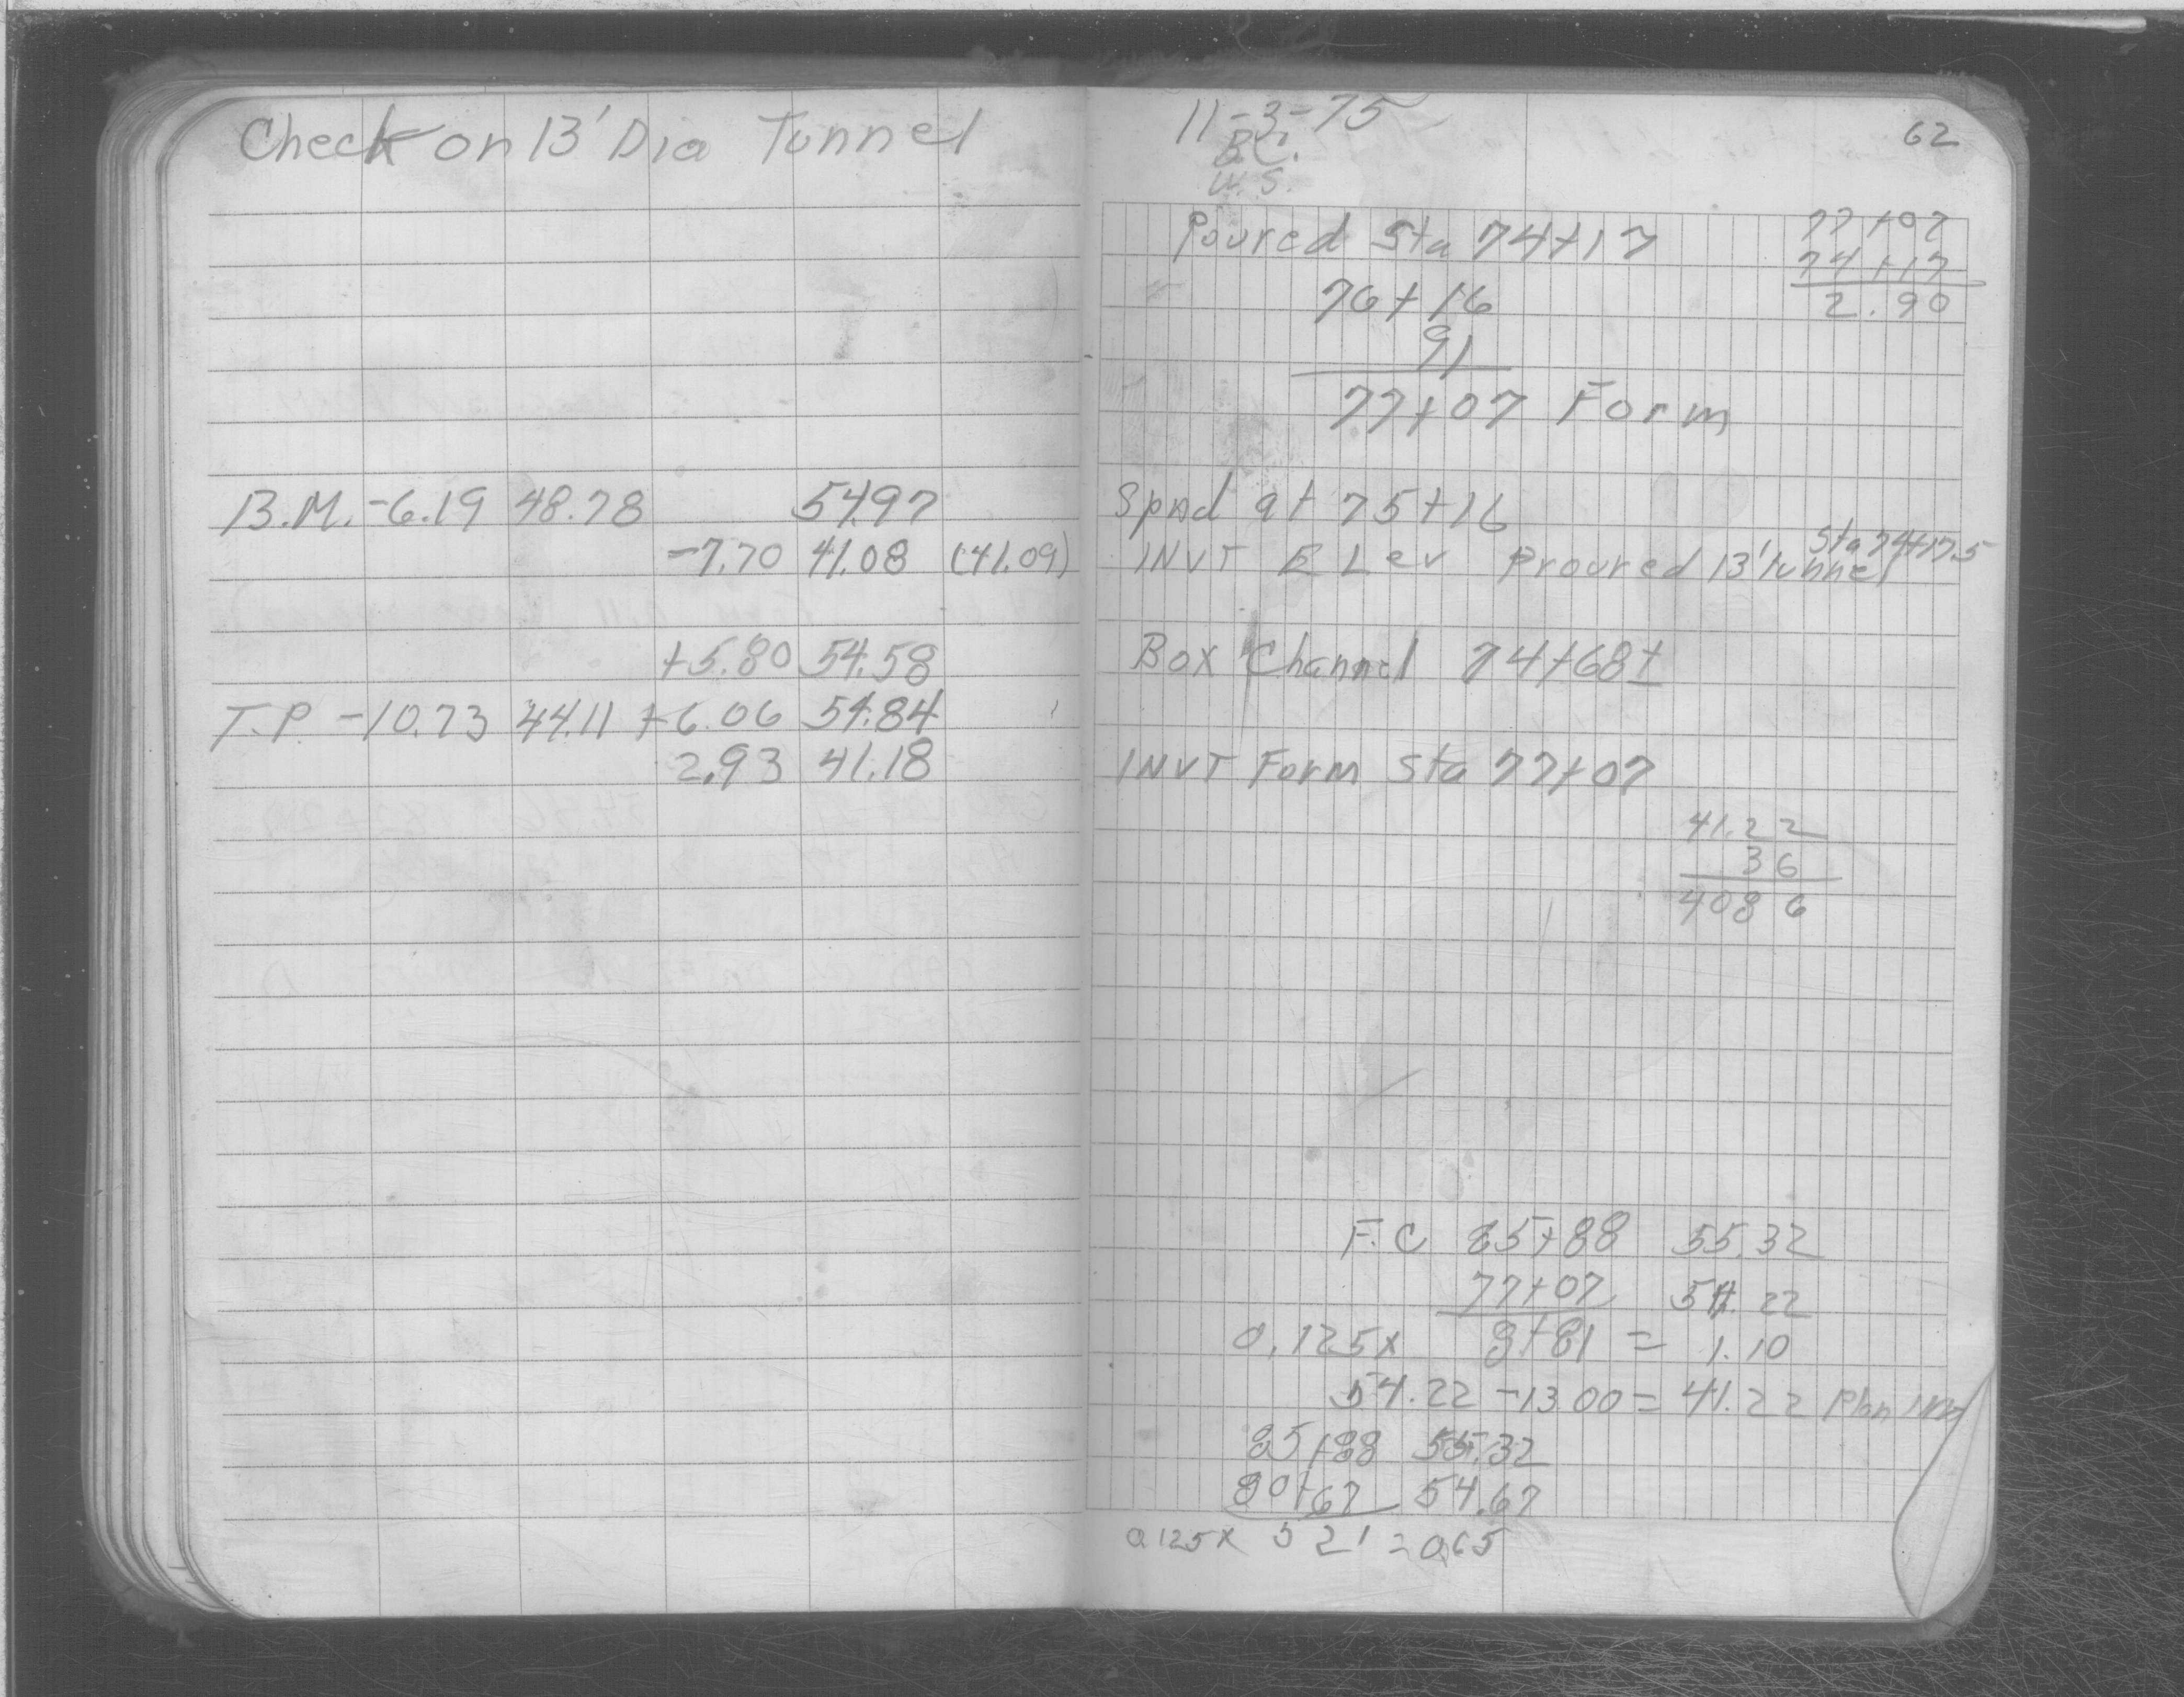 Check on 13' Dia Tunnel
B.M. -6.19 48.78 54.97
-7.70 41.08 (41.09)
+5.80 54.58
T.P. -10.73 44.11 +6.06 54.84
2.93 41.18
11-3-75
B.C.
W.S.
62
Poured Sta 74+17
76+16
91
77+07 Form
77+07
74+17
2.90
Spad at 75+16
Sta 74+17.5
INVT ELev Proured 13' tunnel
Box Channel 74+68±
INVT Form Sta 77+07
41.22
36
4086
F.C 85+88 55.32
77+07 54.22
0.125x 8+81 = 1.10
54.22 -13.00 = 41.22 Plan
85+88 55.32
80+67 54.67
0.125x 521 = 0.65